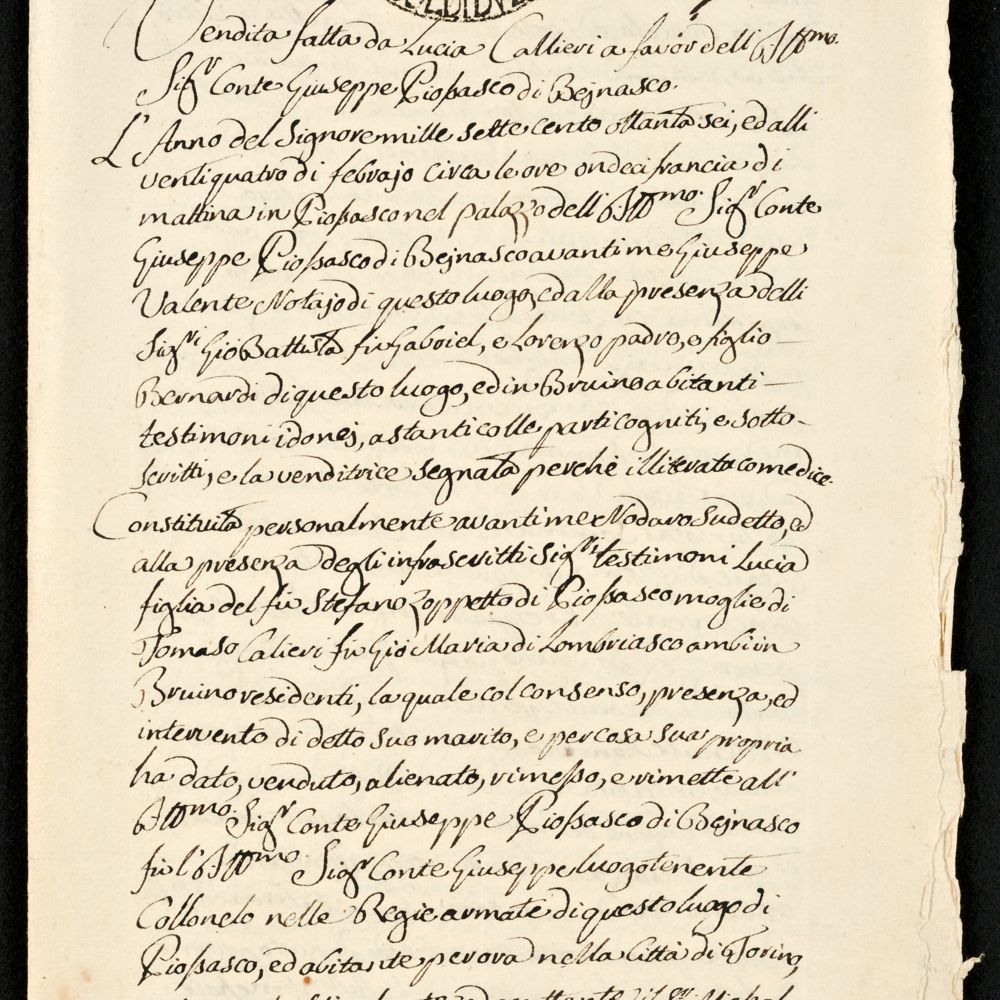 Vendita fatta da Lucia Callieri a favor dell' Ill.mo
Sig.r Conte Giuseppe Piossasco di Bejnasco.
L'Anno del Signore mille sette cento ottanta sei, ed alli
ventiquatro di febrajo circa le ore ondeci francia di
mattina in Piossasco nel palazzo dell' Ill.mo Sig.r Conte
Giuseppe Piossasco di Bejnasco avanti me Giuseppe
Valente Notajo di questo luogo, ed alla presenza delli
Sig.ri Gio Battista fu Gabriel, e Lorenzo padre, e figlio
Bernardi di questo luogo, ed in Bruino abitanti
testimoni idonej, astanti colle parti cogniti, e sotto-
scritti, e la venditrice segnata perchè illiterata come dice.
Constituita personalmente avanti me Nodaro Sudetto, ed
alla presenza degli infrascritti Sig.ri testimoni Lucia
figlia del fu Stefano Zoppetto di Piossasco moglie di
Tomaso Calieri fu Gio Maria di Lombriasco ambi in
Bruino residenti, la quale col consenso, presenza, ed
intervento di detto suo marito, e per cosa sua propria
ha dato, venduto, alienato, rimesso, e rimette all'
Ill.mo Sig.r Conte Giuseppe Piossasco di Bejnasco
fu l'Ill.mo Sig.r Conte Giuseppe luogotenente
Collonelo nelle Regie armate di questo luogo di
Piossasco, ed abitante per ora nella Città di Torino,